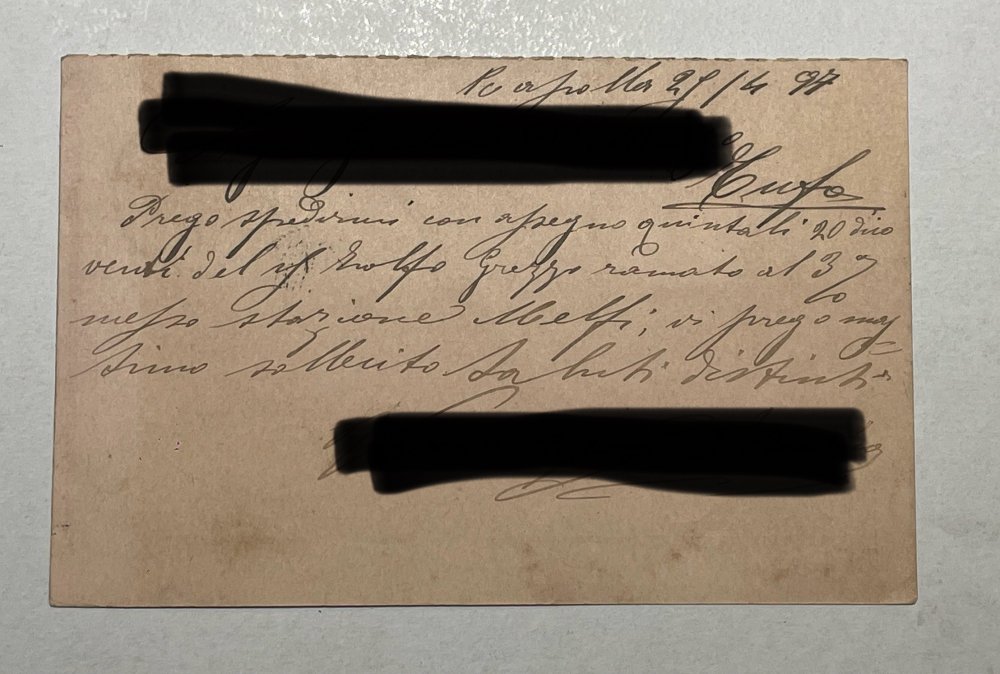 Rapolla 25/4 97
Tufo
Prego spedirmi con assegno quintali 20 dico
venti del vs Zolfo Grezzo ramato al 3 %
messo stazione Melfi; vi prego mas=
simo sollecito Saluti distinti